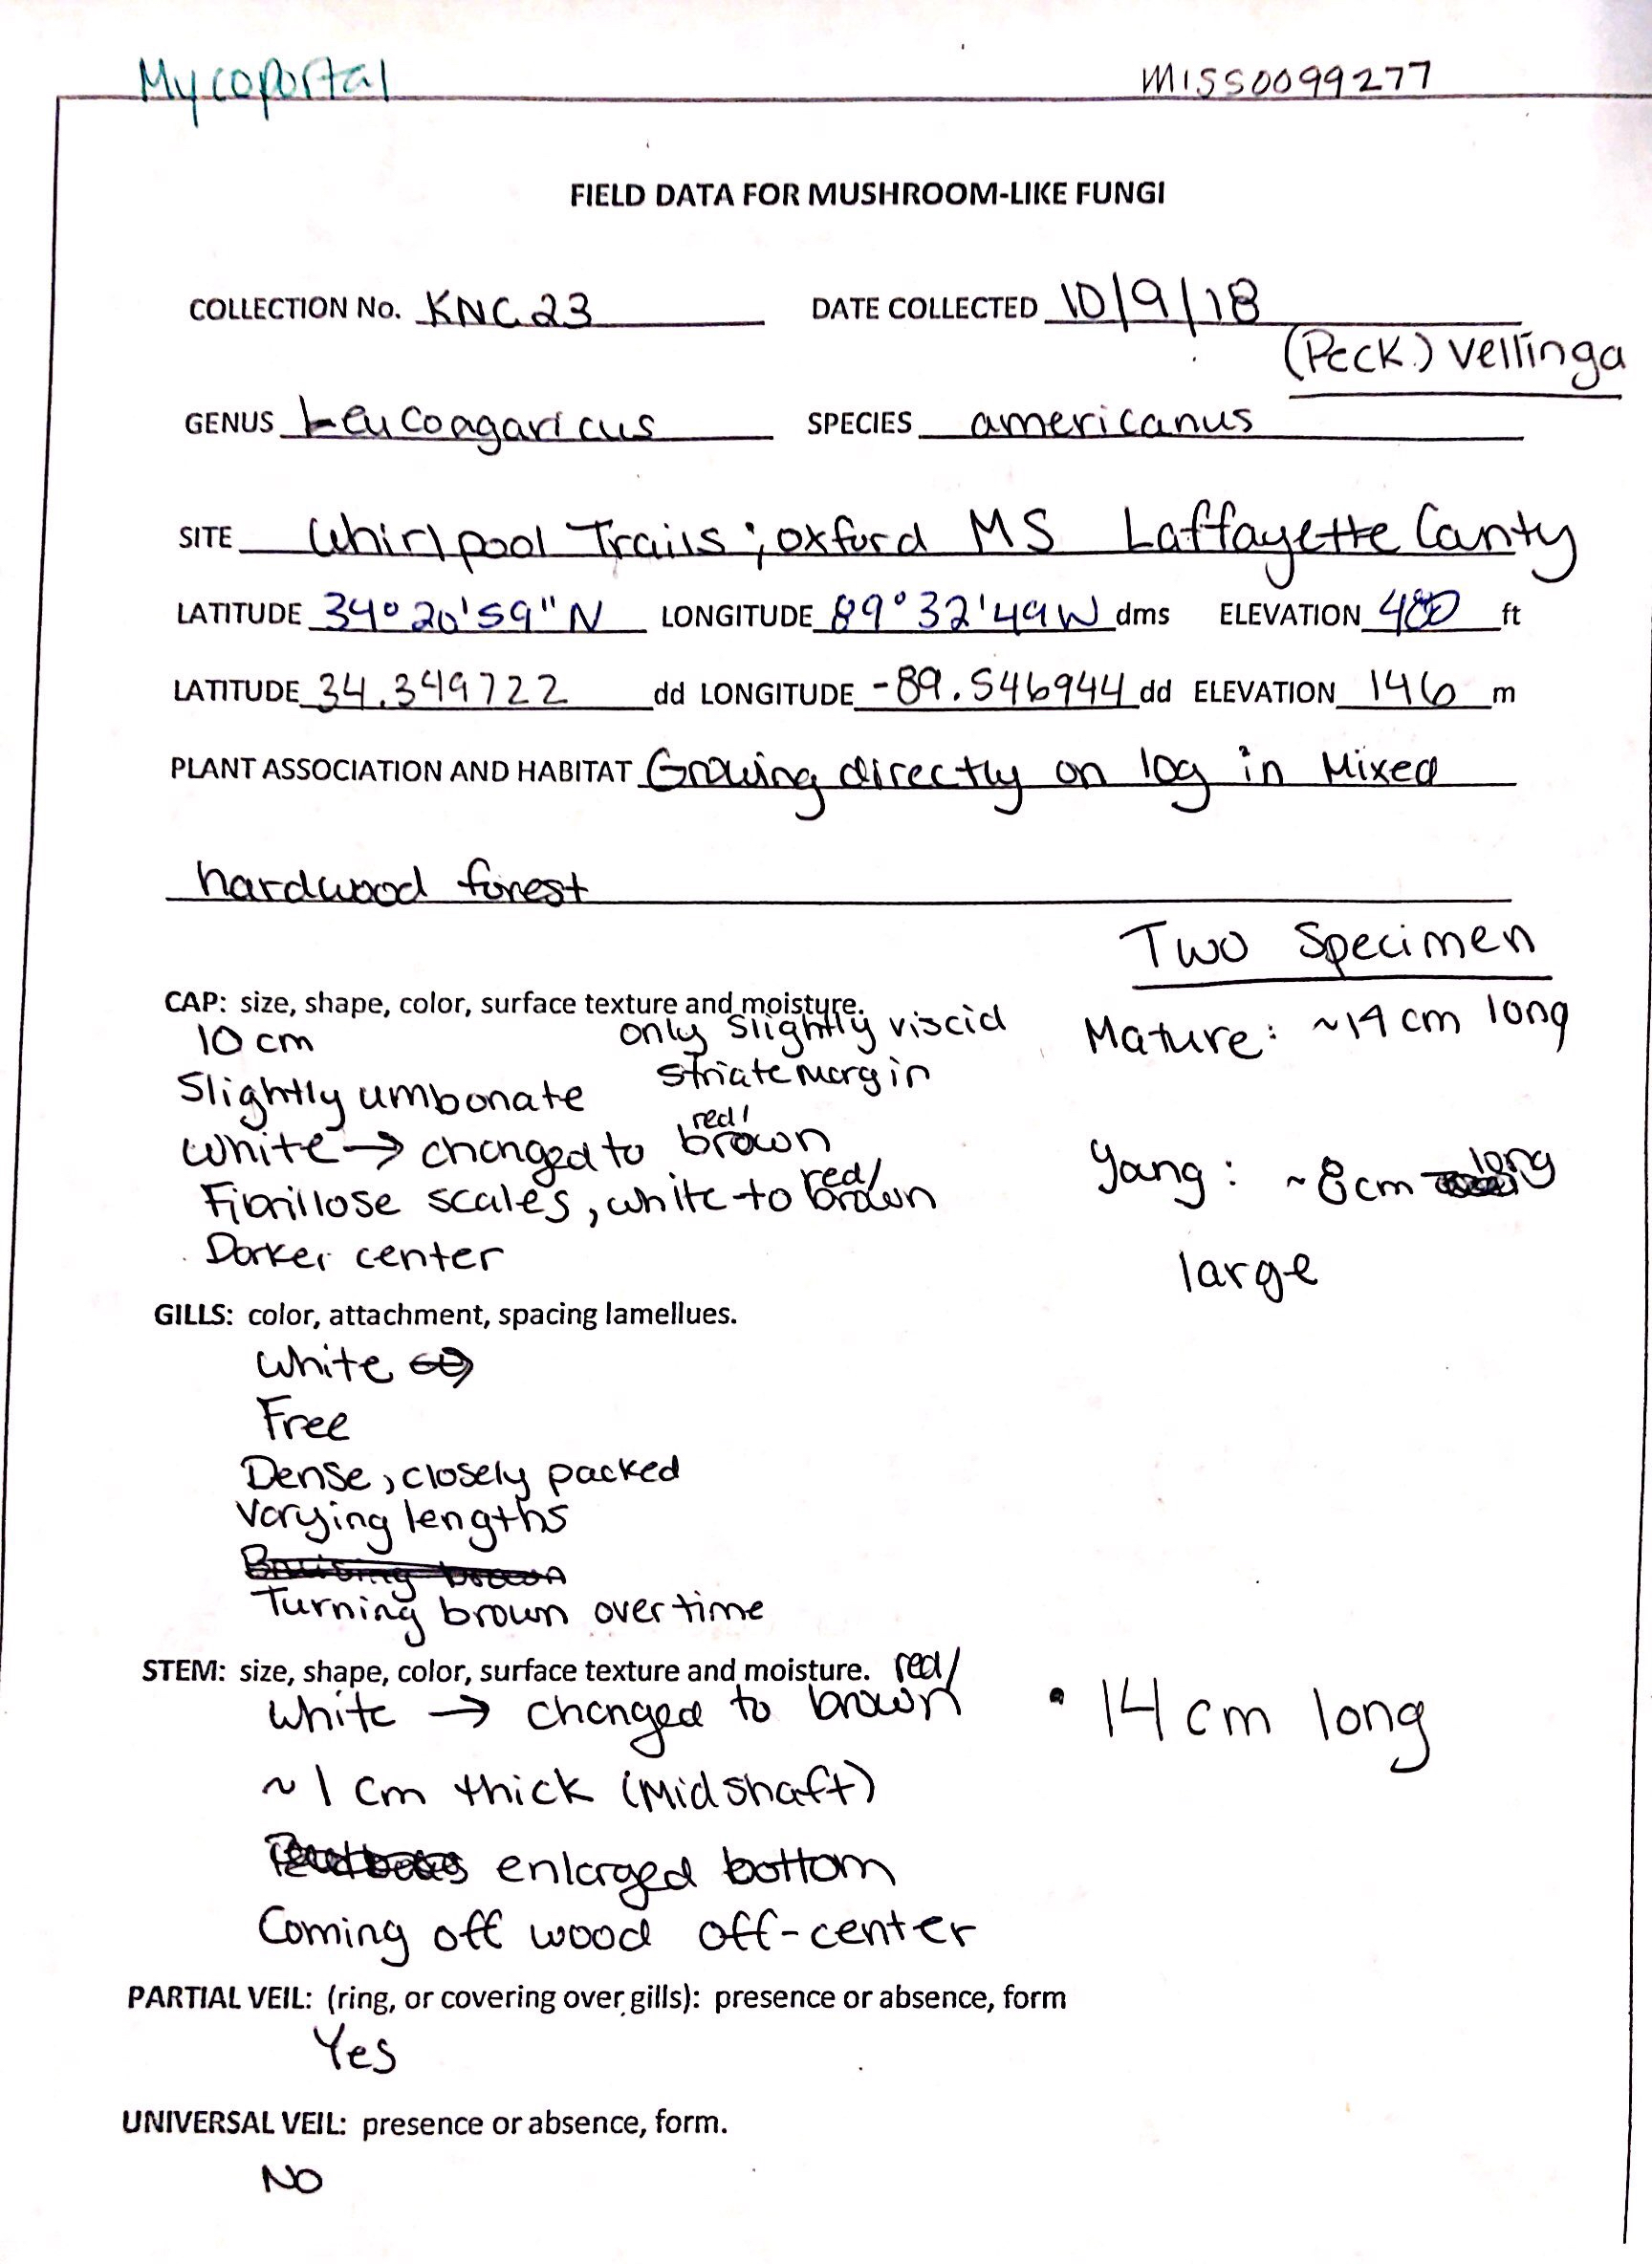 Mycoportal
MISS0099277
FIELD DATA FOR MUSHROOM-LIKE FUNGI
COLLECTION No. KNC 23 DATE COLLECTED 10/9/18
(Peck.) Vellinga
GENUS Leucoagaricus SPECIES americanus
SITE Whirlpool Trails; oxford MS Laffayette County
LATITUDE 34° 20' 59" N LONGITUDE 89° 32' 49 W dms ELEVATION 480 ft
LATITUDE 34.349722 dd LONGITUDE -89.546944 dd ELEVATION 146 m
PLANT ASSOCIATION AND HABITAT Growing directly on log in Mixed
hardwood forest
Two Specimen
CAP: size, shape, color, surface texture and moisture.
10 cm only slightly viscid Mature: ~14 cm long
Slightly umbonate striate margin
white → changed to red/ brown
Young: ~8cm long
Fibrillose scales, white to red/ brown
Darker center
large
GILLS: color, attachment, spacing lamellues.
white
Free
Dense, closely packed
Varying lengths
Bruising brown
Turning brown over time
STEM: size, shape, color, surface texture and moisture.
white → changed to red/ brown • 14 cm long
~ 1 cm thick (Midshaft)
enlarged bottom
Coming off wood off-center
PARTIAL VEIL: (ring, or covering over gills): presence or absence, form
Yes
UNIVERSAL VEIL: presence or absence, form.
NO